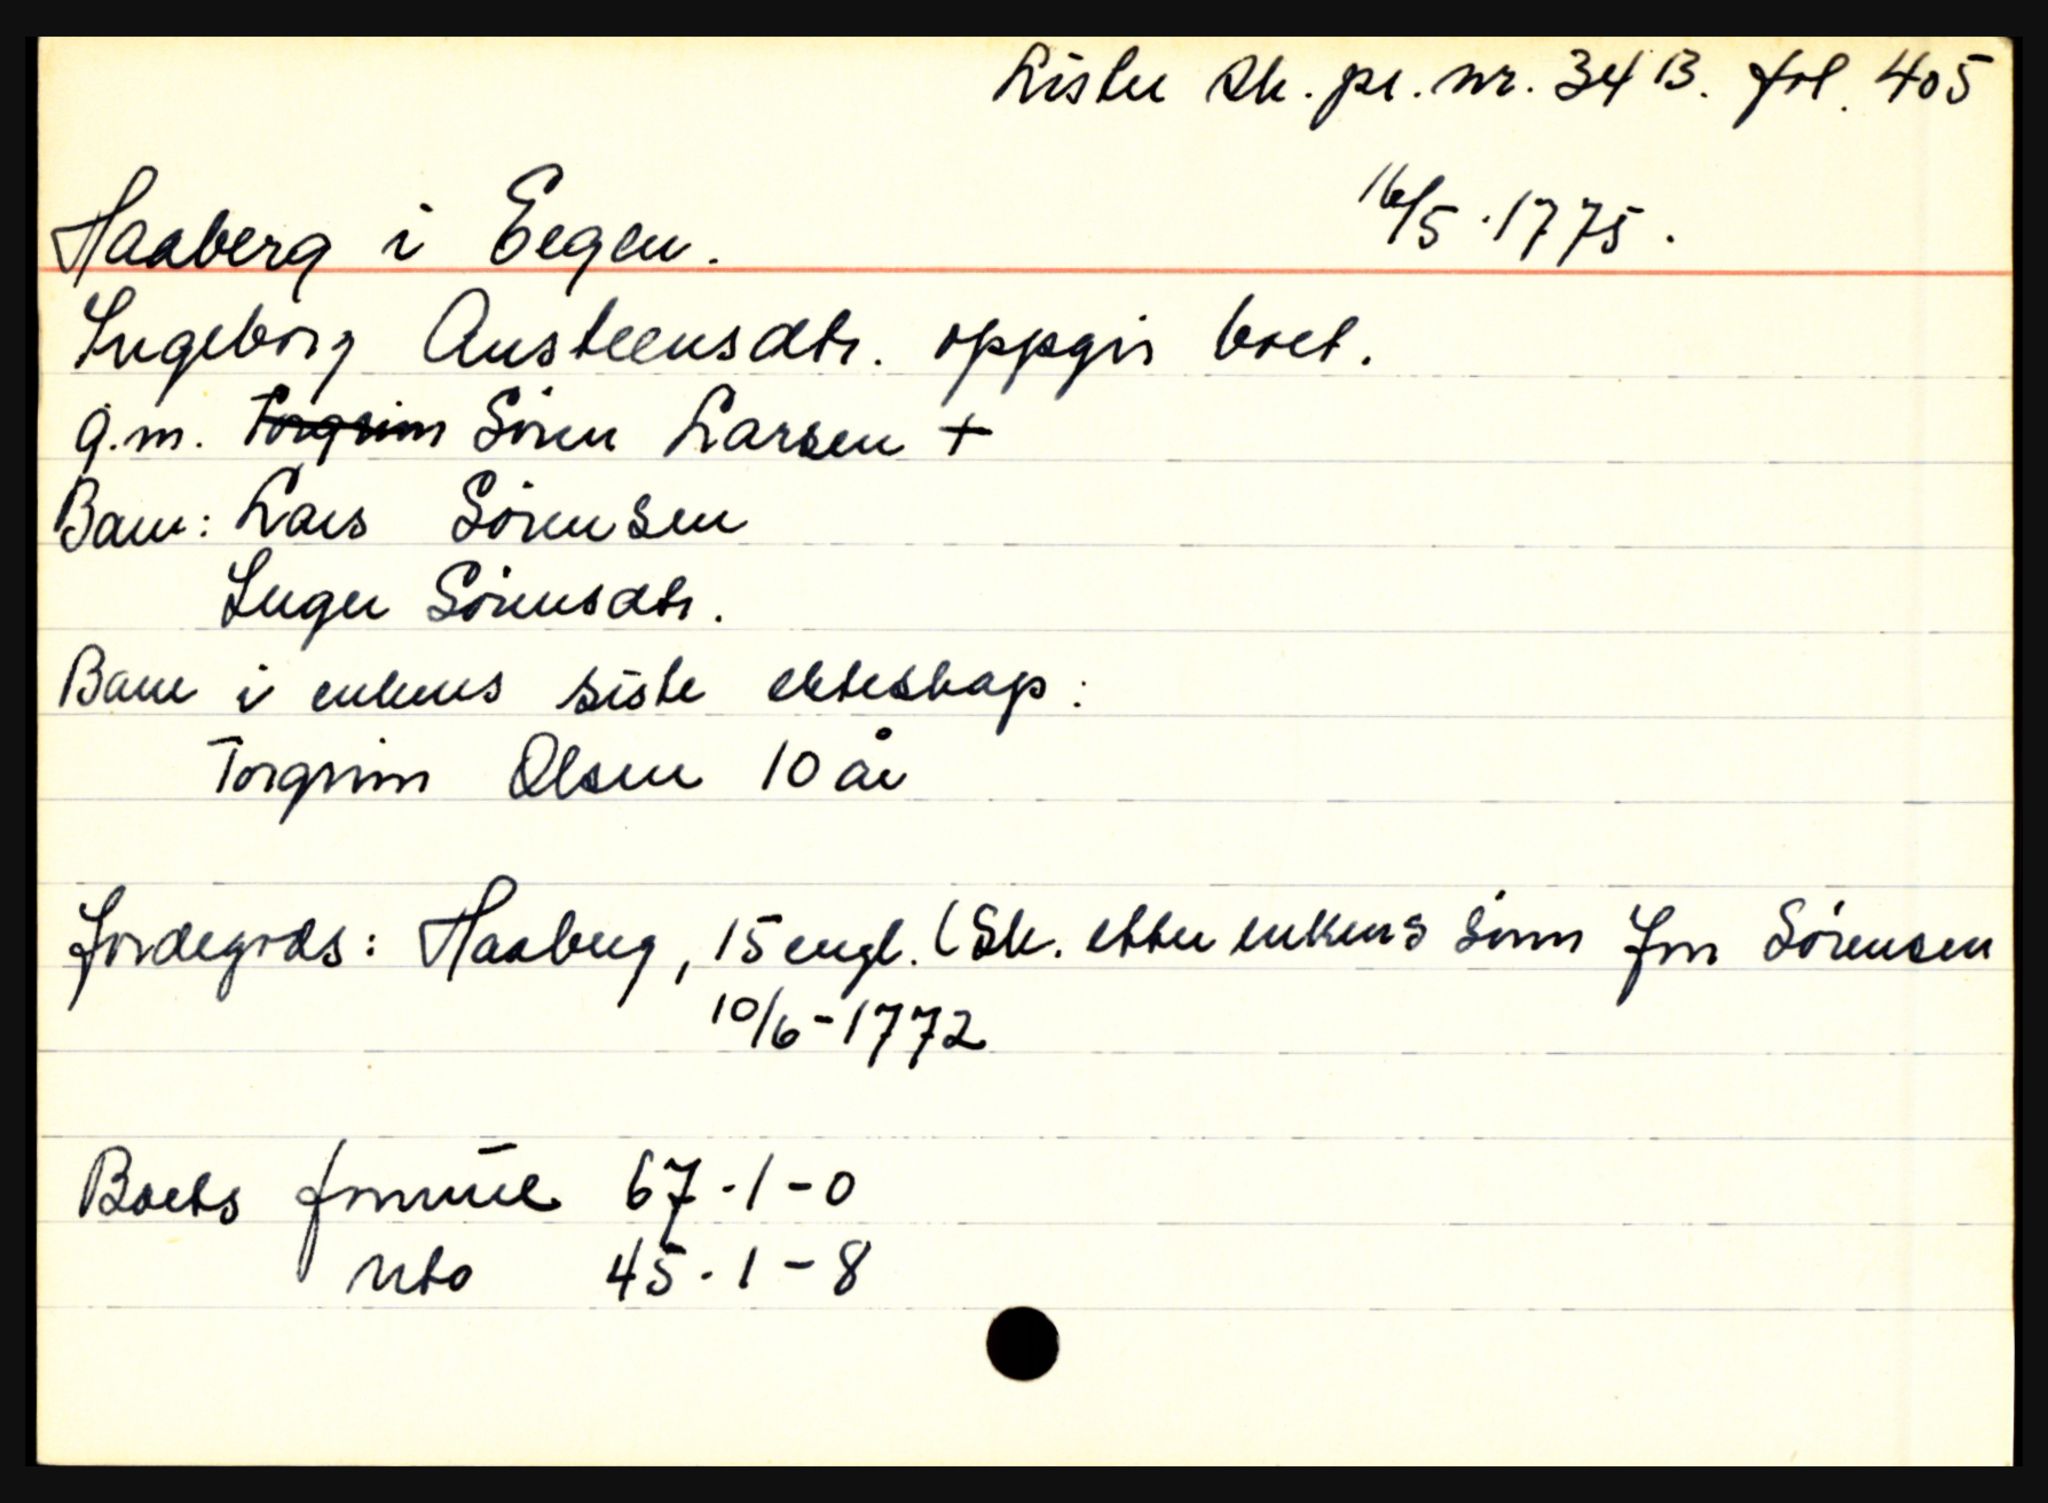 Lister sk. pr. nr. 34 B. fol. 405
Haaberg i Eegen. 16/5.1775.
Ingeborg Austeensdtr. oppgir boet.
g.m. Torgrim Sören Larsen +
Barn: Lars Sörensen
Inger Sörensdtr.
Barn i enkens siste ekteskap:
Torgrim Olsen 10 år
Jordegods: Haaberg, 15 engl. (Sk. etter enkens sönn Jon Sörensen
10/6-1772
Boets formue 67-1-0
nto 45-1-8